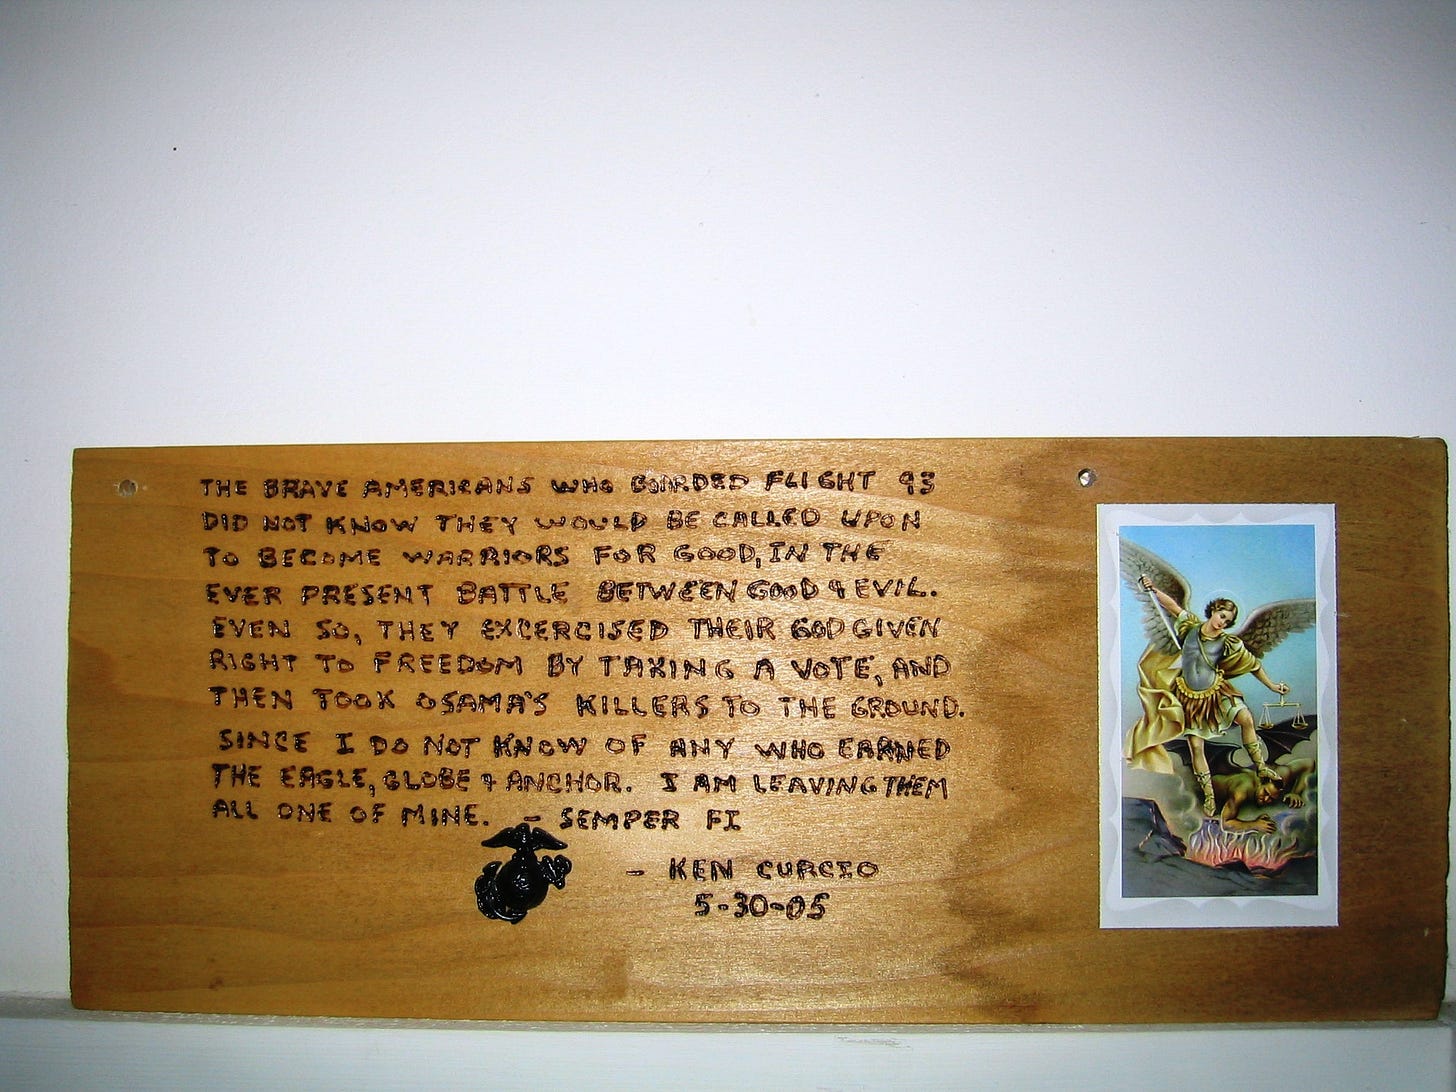 THE BRAVE AMERICANS WHO BOARDED FLIGHT 93
DID NOT KNOW THEY WOULD BE CALLED UPON
TO BECOME WARRIORS FOR GOOD, IN THE
EVER PRESENT BATTLE BETWEEN GOOD & EVIL.
EVEN SO, THEY EXCERCISED THEIR GOD GIVEN
RIGHT TO FREEDOM BY TAKING A VOTE, AND
THEN TOOK OSAMA'S KILLERS TO THE GROUND.
SINCE I DO NOT KNOW OF ANY WHO EARNED
THE EAGLE, GLOBE & ANCHOR. I AM LEAVING THEM
ALL ONE OF MINE. - SEMPER FI
- KEN CURCIO
5-30-05